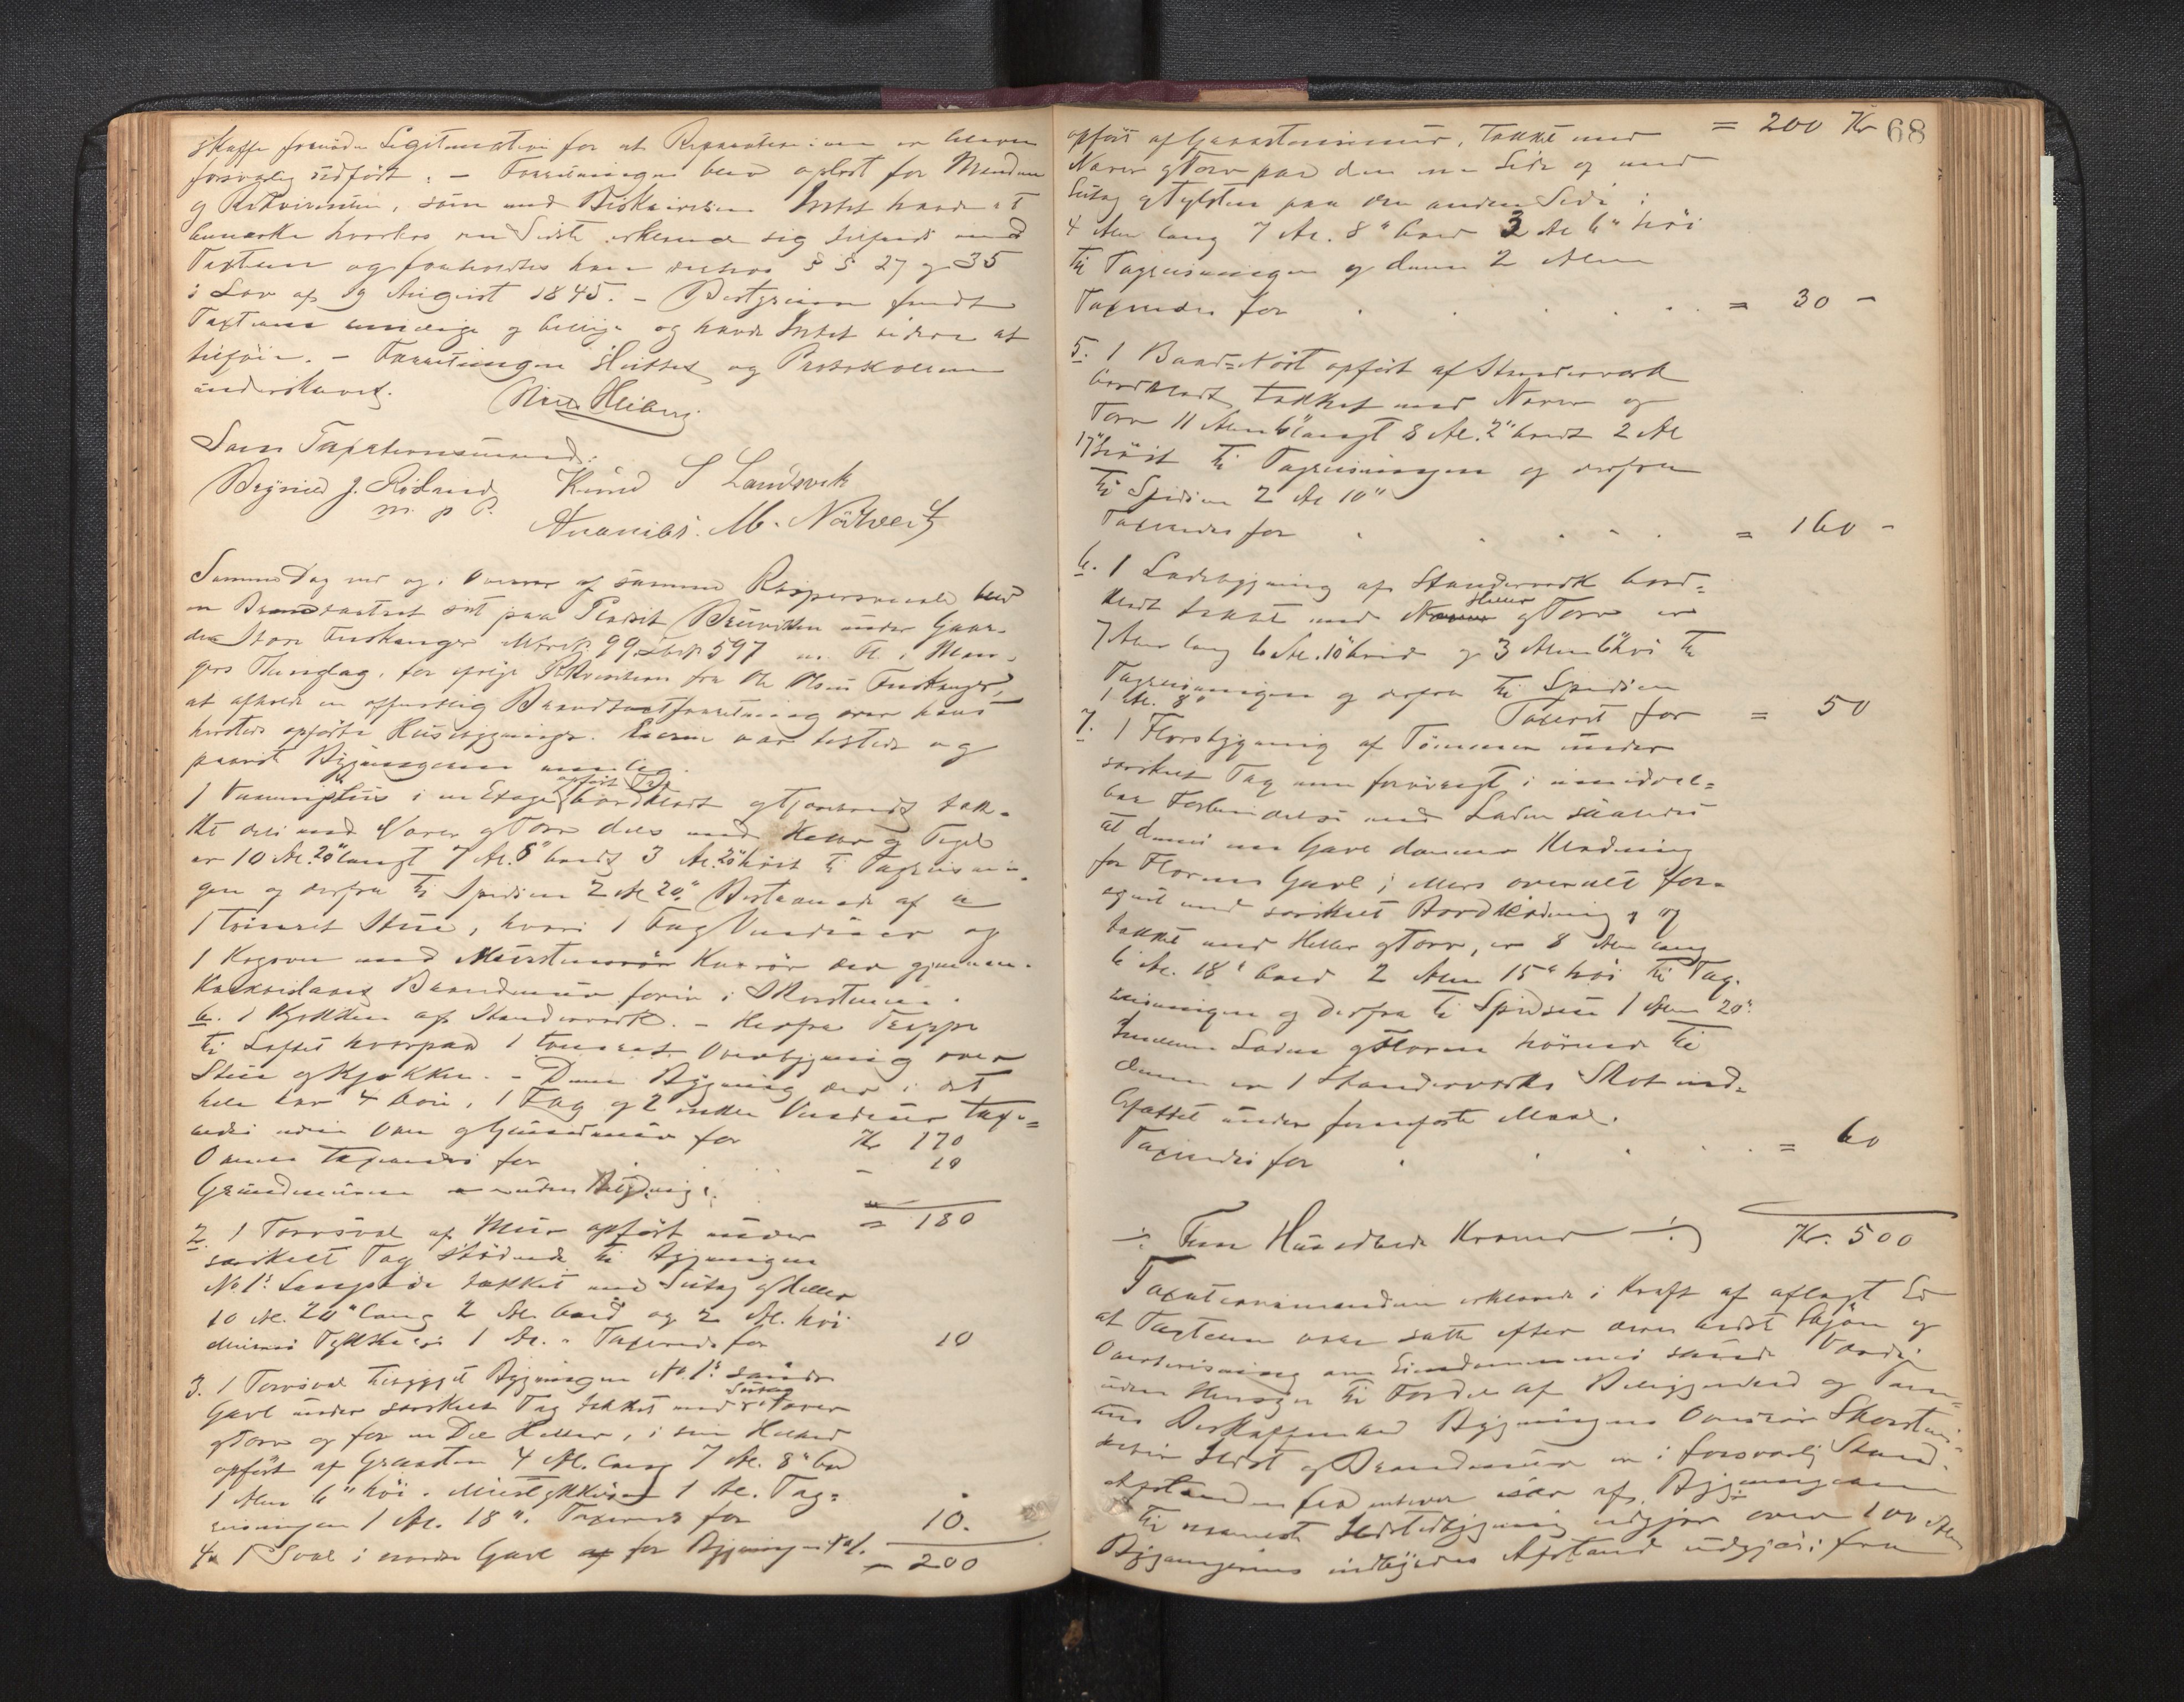 skaffe fornøden Legitimation for at Reparationerne er bleven
forsvarlig udført. – Forretningen blev oplæst for Mændene
og Rekvirenten, som ved Beskrivelsen Intet havde at
bemærke hvorhos den Sidste erklærede sig tilfreds med
Taxten og foreholdtes ham derhos §§ 27 og 35
i Lov af 19 August 1845. – Bestyreren fandt
Taxterne og billige og havde Intet videre at
tilføie. – Forretningen sluttet og Protokollen
underskrevet. Heiberg
Som Taxationsmænd:
Brynild J. Röland Knud S Landsvik
m. p P. Ananias. M. Nödtvedt
Samme Dag og i Overvær af samme Retspersonale blev
en Brandtaxtret sat paa Pladset under Gaar-
den Store Fuskanger Matr. № 99. Lbn 597 i Man-
gers Thinglag, for ifølge Rekvisition fra Ole Olsen Fuskanger,
at afholde en offentlig Brandtaxtforretning over hans
herstede opførte Husebygninger. Eieren var tilstede og
paaviste Bygningerne nemlig:
1 Vaaningshus i en Etage opført bordklædt tæk-
ket dels med Næver og Torv dels med Heller og Tegl
er 10 Al. 20" langt 7 Al. 8" bredt 3 Al. 20" høit til Tagreisnin-
gen og derfra til Spidsen 2 Al 20". Bestaaende af a
1 tømret Stue, hvori 1 Fag Vinduer og
1 Kogeovn med Kakkelrør der gjennem
Brandmur føres i Skorstenen.
b. 1 Kjøkken af Standerværk. – Herfra Trappe
til Loftet hvorpaa 1 tømret Overbygning over
Stue og Kjøkken. – Denne Bygning der i det
hele har 4 Døre, 1 Fag og 2 enkle Vinduer tax-
eredes uden Ovn og Grundmur for Kr 170
Ovnen taxeredes for – 10
Grundmuren uden Betydning.
= 180
2. 1 Torvsval af Mur opført under
særskilt Tag stødende til Bygningen
No 1s Langside tækket med Sutag og Heller
10 Al. 20" lang 2 Al bred og 2 Al. høi
Murens Tykkelse 1 Al. . Taxeredes for 10
3. 1 Torvsval tilbygget Bygningen No 1s søndre
Gavl under særskilt Tag tækket med Sutag Næver
og Torv og for en Del Heller, i sin Helhed
opført af Graasten 4 Al. lang 7 Al. 8" bred
1 Alen 6" høi. Murtykkelsen 1 Al. Tag-
reisningen 1 Al. 18". Taxeredes for 10.
4. 1 Sval i nordre Gavl af for Bygning – 200
68
opført af Graastensmur, tækket med = 200 Kr
Næver og Torv paa den ene Side og med
Sutag og Tylsten paa den anden Side :
4 Alen lang 7 Al. 8" bred 3 Al 6" høi
til Tagreisningen og denne 2 Alen
Taxeredes for . . . . = 30 –
5. 1 Baad-Nøst opført af Standerværk
bordklædt tækket med Næver og
Torv 11 Alen 6" langt 8 Al. 2" bredt 2 Al
17" høit til Tagreisningen og derfra
til Spidsen 2 Al 10"
Taxeredes for . . . . = 160 –
6. 1 Ladebygning af Standerværk bord-
klædt tækket med Heller og Torv er
7 Alen lang 6 Al. 10" bred og 3 Alen 6" høi til
Tagreisningen og derfra til Spidsen
1 Al. 8" Taxeret for = 50
7. 1 Florsbygning af Tømmer under
særskilt Tag men forøvrigt i umiddel-
bar Forbindelse med Laden saaledes
at dennes ene Gavl danner Klædning
for Florens Gavl; ellers overalt for-
synet med særskilt Bordklædning og
tækket med Heller og Torv, er 8 Alen lang
6 Al. 18" bred 2 Alen 15" høi til Tag-
reisningen og derfra til Spidsen 1 Alen 20".
Imellem Laden og Floren hørende til
denne er 1 Standerværks Skot ind-
befattet under fornævnte Maal.
Taxeredes for . . . . = 60
Kr. 500
÷: Fem Hundrede Kroner ÷
Taxationsmændene erklærede i Kraft af aflagt Ed
at Taxterne vare satte efter deres bedste Skjøn og
Overbevisning om Eiendommenes sande Værdi
uden Hensyn til Fordel af Beliggenhed og Tom-
tens Beskaffenhed Bygningens Ovnsrør Skorsten
Ildsted og Brandmur er i forsvarlig Stand.
Afstanden fra enhver især af Bygningerne
til nærmeste Ildstedbygning udgjør over 100 Alen
Bygningernes indbyrdes Afstand udgjør: fra